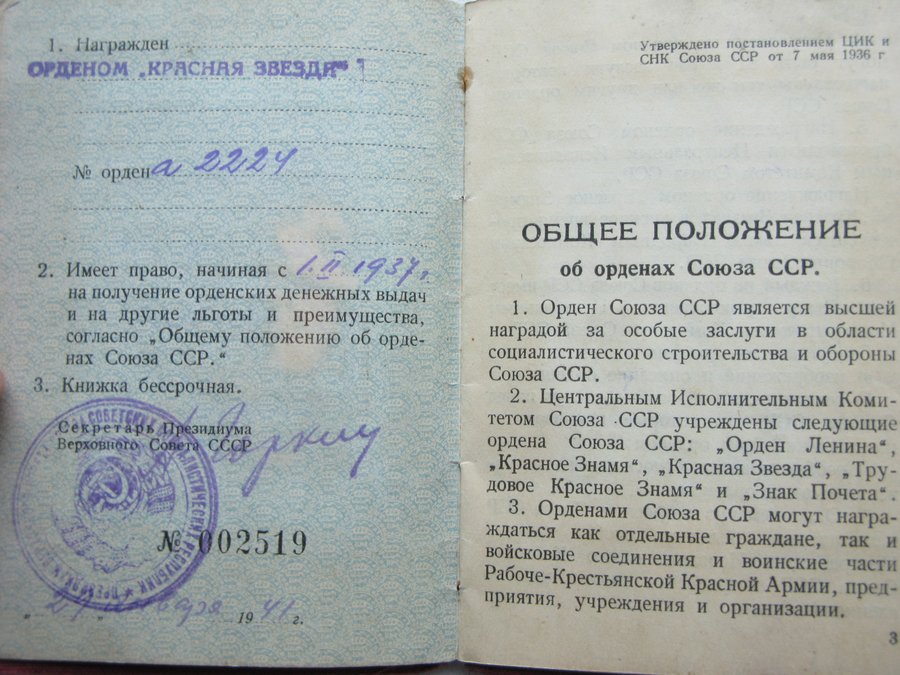 1. Награжден
ОРДЕНОМ „КРАСНАЯ ЗВЕЗДА“
№ ордена 2224
2. Имеет право, начиная с 1.II.1937г.
на получение орденских денежных выдач
и на другие льготы и преимущества,
согласно „Общему положению об орде-
нах Союза ССР.“
3. Книжка бессрочная.
Секретарь Президиума
Верховного Совета СССР
№ 002519
1941 г.
Утверждено постановлением ЦИК и
СНК Союза ССР от 7 мая 1936 г
ОБЩЕЕ ПОЛОЖЕНИЕ
об орденах Союза ССР.
1. Орден Союза ССР является высшей
наградой за особые заслуги в области
социалистического строительства и обороны
Союза ССР.
2. Центральным Исполнительным Коми-
тетом Союза ССР учреждены следующие
ордена Союза ССР: „Орден Ленина“,
„Красное Знамя“, „Красная Звезда“, „Тру-
довое Красное Знамя“ и „Знак Почета“.
3. Орденами Союза ССР могут награ-
ждаться как отдельные граждане, так и
войсковые соединения и воинские части
Рабоче-Крестьянской Красной Армии, пред-
приятия, учреждения и организации.
3